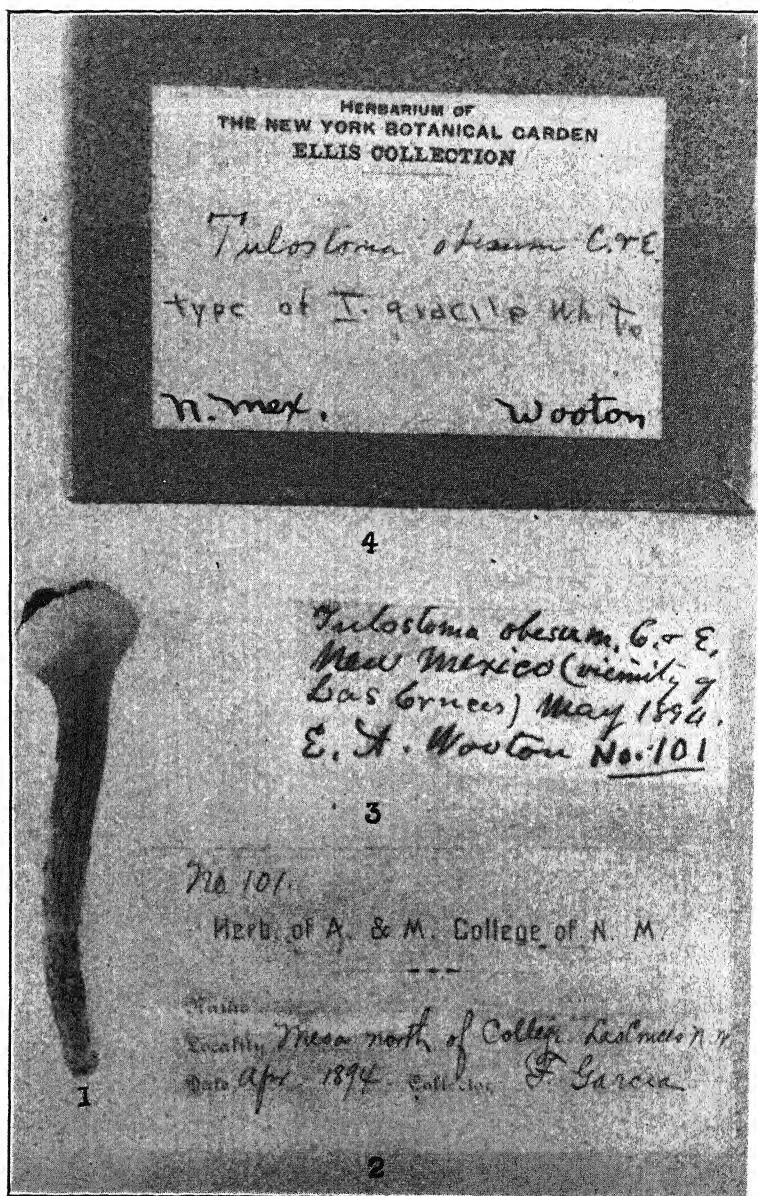 HERBARIUM OF
THE NEW YORK BOTANICAL GARDEN
ELLIS COLLECTION
Tulostoma obesum C. & E.
type of T. gracile White
N. Mex. Wooton
4
Tulostoma obesum, C. & E.
New Mexico (vicinity of
Las Cruces) May 1894.
E. A. Wooton No. 101
3
No 101.
Herb. of A. & M. College of N. M.
Name
Locality Mesa north of College Las Cruces N. M.
Date Apr. 1894. Collector F Garcia
1
2